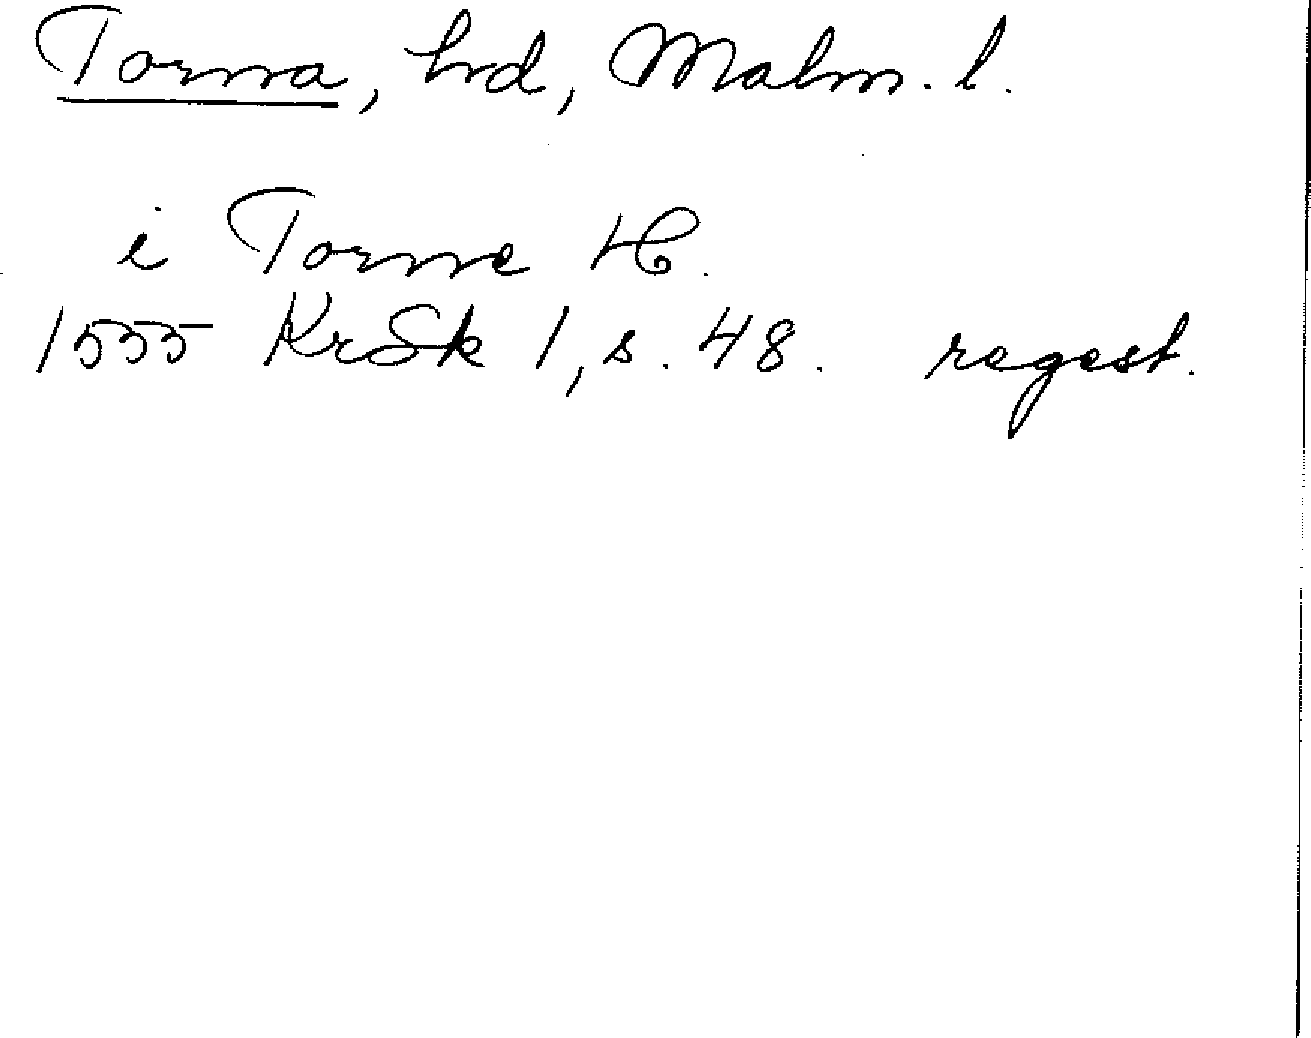 Torna, hrd, Malm. l.
i Torne H.
1555 KrSk 1, s. 48. regest.